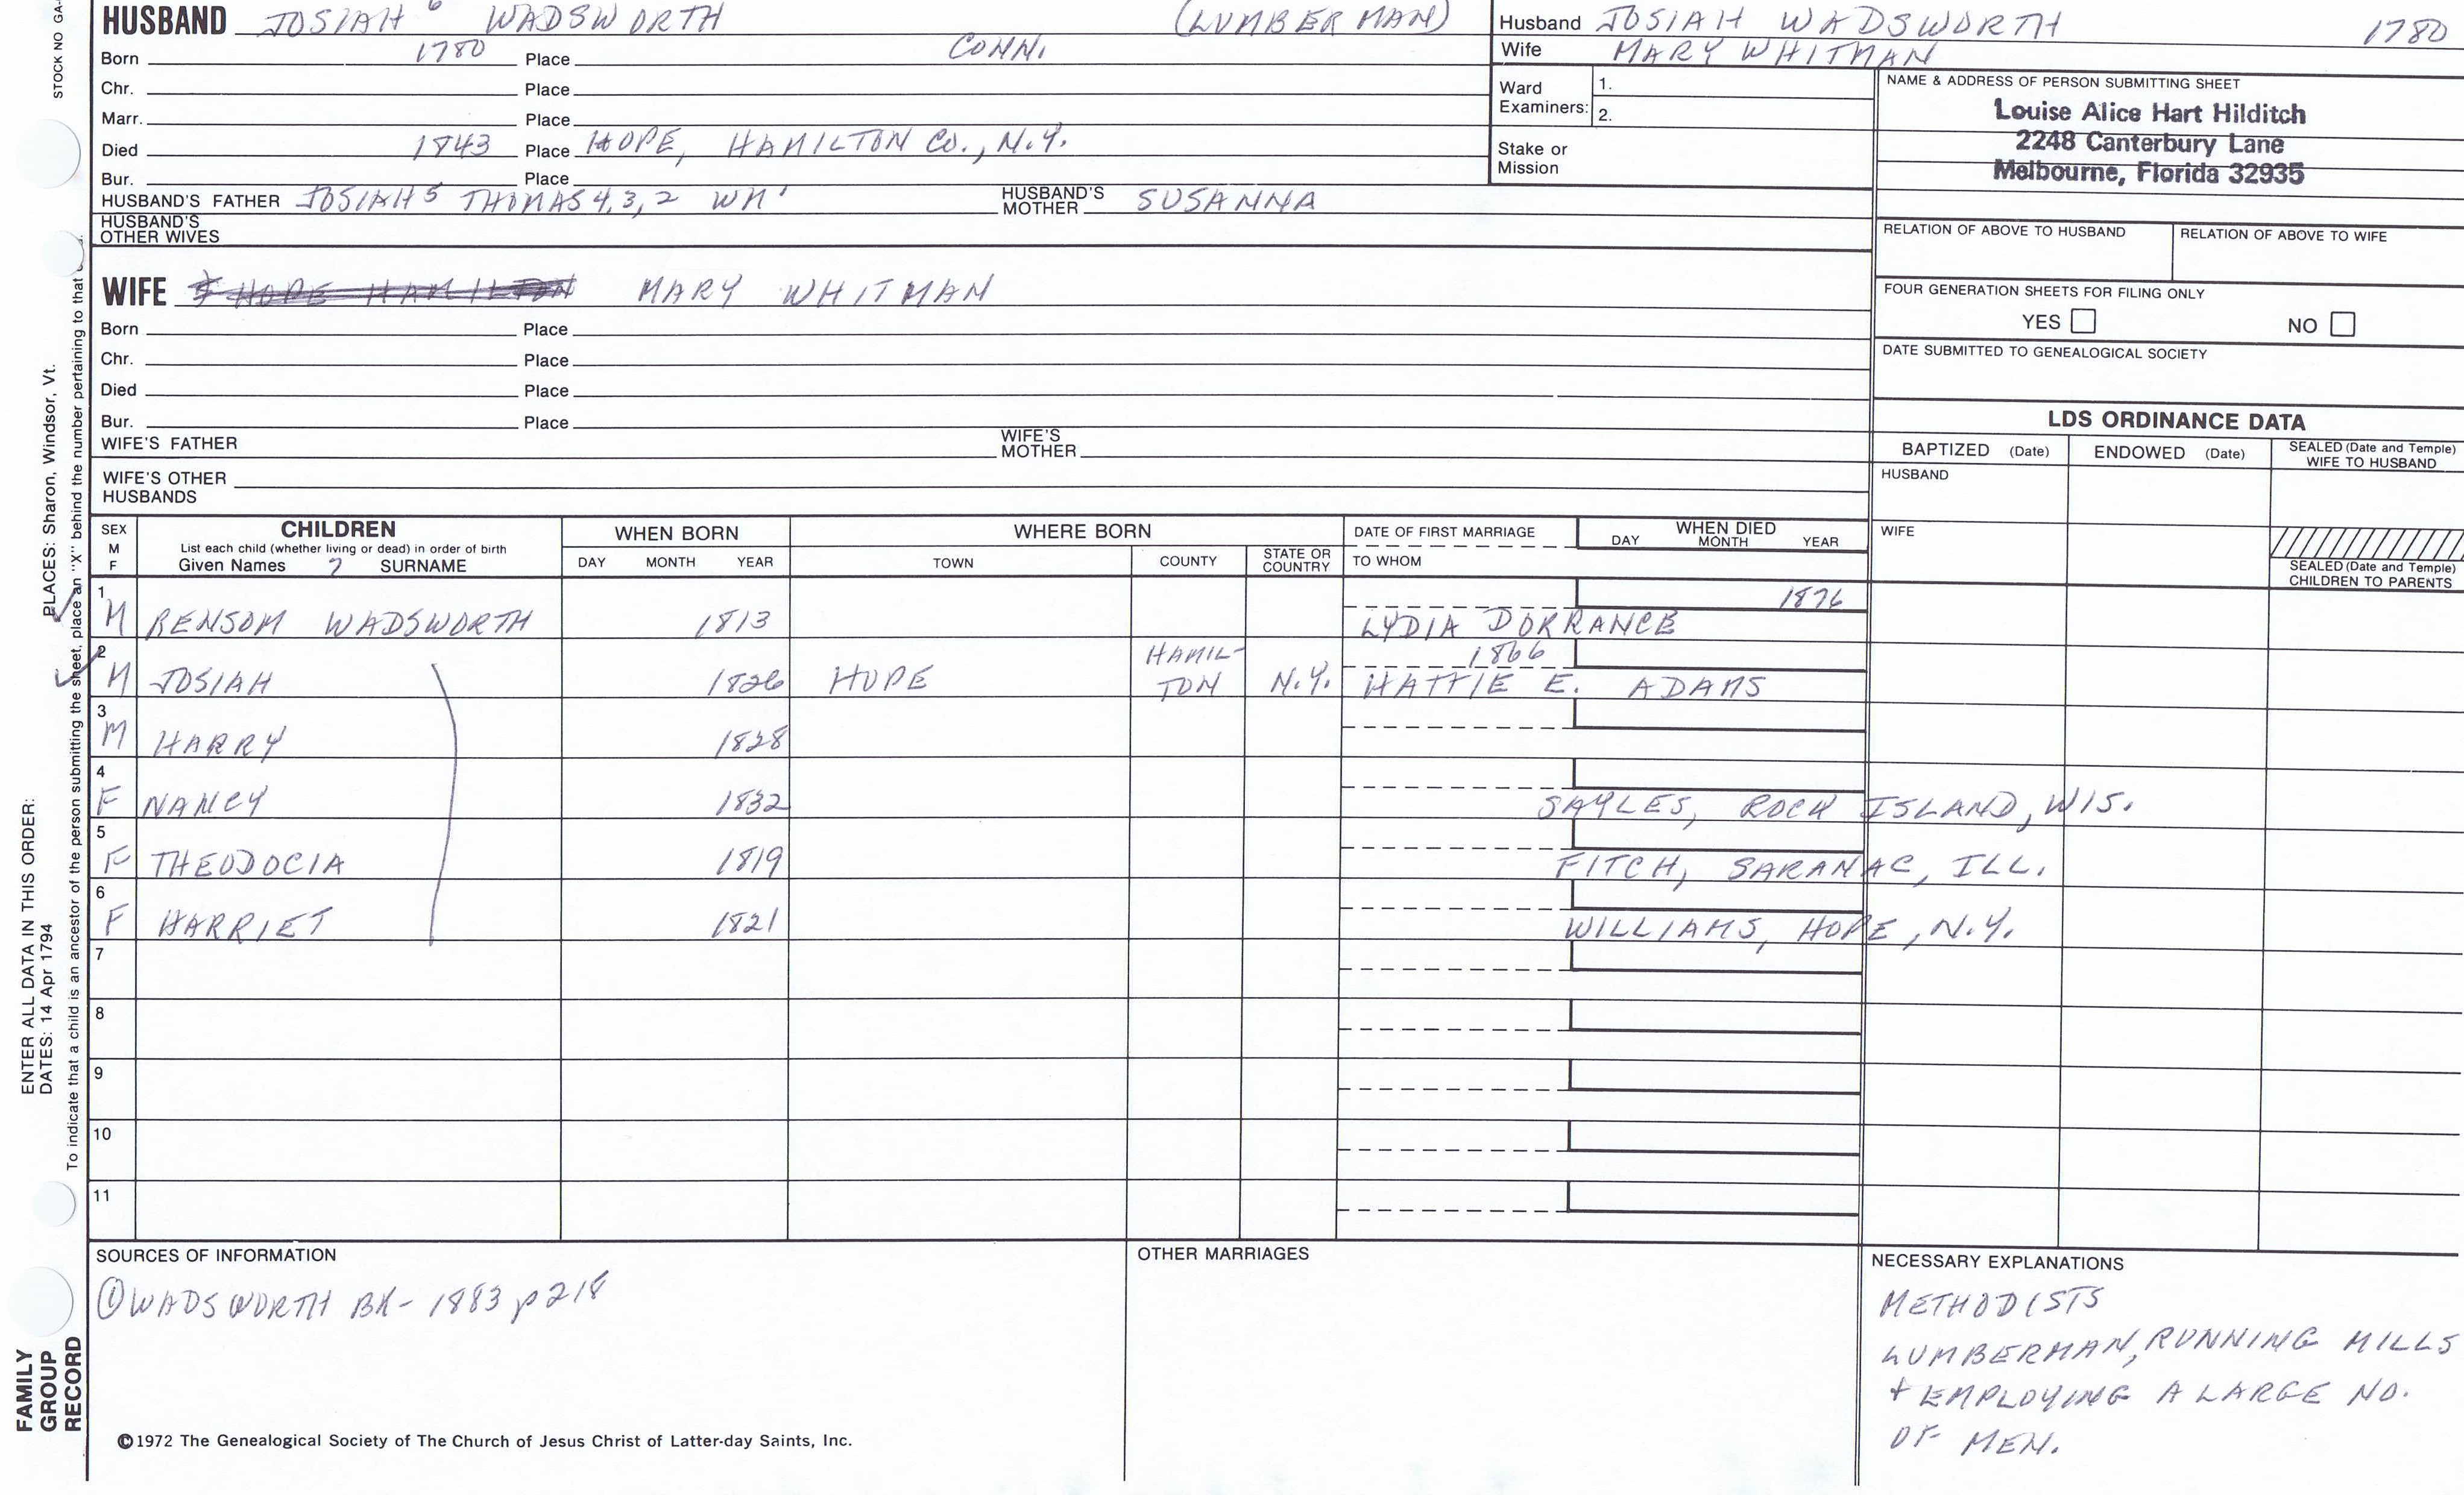 STOCK NO GA-
HUSBAND JOSIAH 6 WADSWORTH (LUMBERMAN)
Born 1780 Place CONN.
Chr. Place
Marr. Place
Died 1843 Place HOPE, HAMILTON CO., N.Y.
Bur. Place
HUSBAND'S FATHER JOSIAH 5 THOMAS 4,3,2 WM' HUSBAND'S MOTHER SUSANNA
HUSBAND'S
OTHER WIVES
Husband JOSIAH WADSWORTH 1780
Wife MARY WHITMAN
Ward
Examiners:
1.
2.
Stake or
Mission
NAME & ADDRESS OF PERSON SUBMITTING SHEET
Louise Alice Hart Hilditch
2248 Canterbury Lane
Melbourne, Florida 32935
RELATION OF ABOVE TO HUSBAND RELATION OF ABOVE TO WIFE
FOUR GENERATION SHEETS FOR FILING ONLY
YES NO
DATE SUBMITTED TO GENEALOGICAL SOCIETY
WIFE HOPE HAMILTON MARY WHITMAN
Born Place
Chr. Place
Died Place
Bur. Place
WIFE'S FATHER WIFE'S MOTHER
WIFE'S OTHER
HUSBANDS
LDS ORDINANCE DATA
BAPTIZED (Date) ENDOWED (Date) SEALED (Date and Temple) WIFE TO HUSBAND
HUSBAND
WIFE
SEALED (Date and Temple)
CHILDREN TO PARENTS
SEX
M
F
CHILDREN
List each child (whether living or dead) in order of birth
Given Names 7 SURNAME
WHEN BORN
DAY MONTH YEAR
WHERE BORN
TOWN COUNTY STATE OR COUNTRY
DATE OF FIRST MARRIAGE
TO WHOM
WHEN DIED
DAY MONTH YEAR
1 1876
M RENSOM WADSWORTH 1813 LYDIA DORRANCE
2 HAMIL- 1866
M JOSIAH 1826 HOPE TON N.Y. HATTIE E. ADAMS
3
M HARRY 1828
4
F NANCY 1832 SAYLES, ROCK ISLAND, WIS.
5
F THEODOCIA 1819 FITCH, SARANAC, ILL.
6
F HARRIET 1821 WILLIAMS, HOPE, N.Y.
7
8
9
10
11
SOURCES OF INFORMATION
① WADSWORTH BK- 1883 p 218
OTHER MARRIAGES
NECESSARY EXPLANATIONS
METHODISTS
LUMBERMAN, RUNNING MILLS
+ EMPLOYING A LARGE NO.
OF MEN.
©1972 The Genealogical Society of The Church of Jesus Christ of Latter-day Saints, Inc.
FAMILY
GROUP
RECORD
ENTER ALL DATA IN THIS ORDER:
DATES: 14 Apr 1794
PLACES: Sharon, Windsor, Vt.
To indicate that a child is an ancestor of the person submitting the sheet, place an "X" behind the number pertaining to that